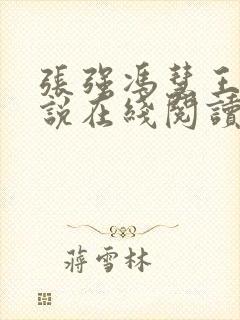 張強馮慧王
說在綫閱讀
蔣雪林